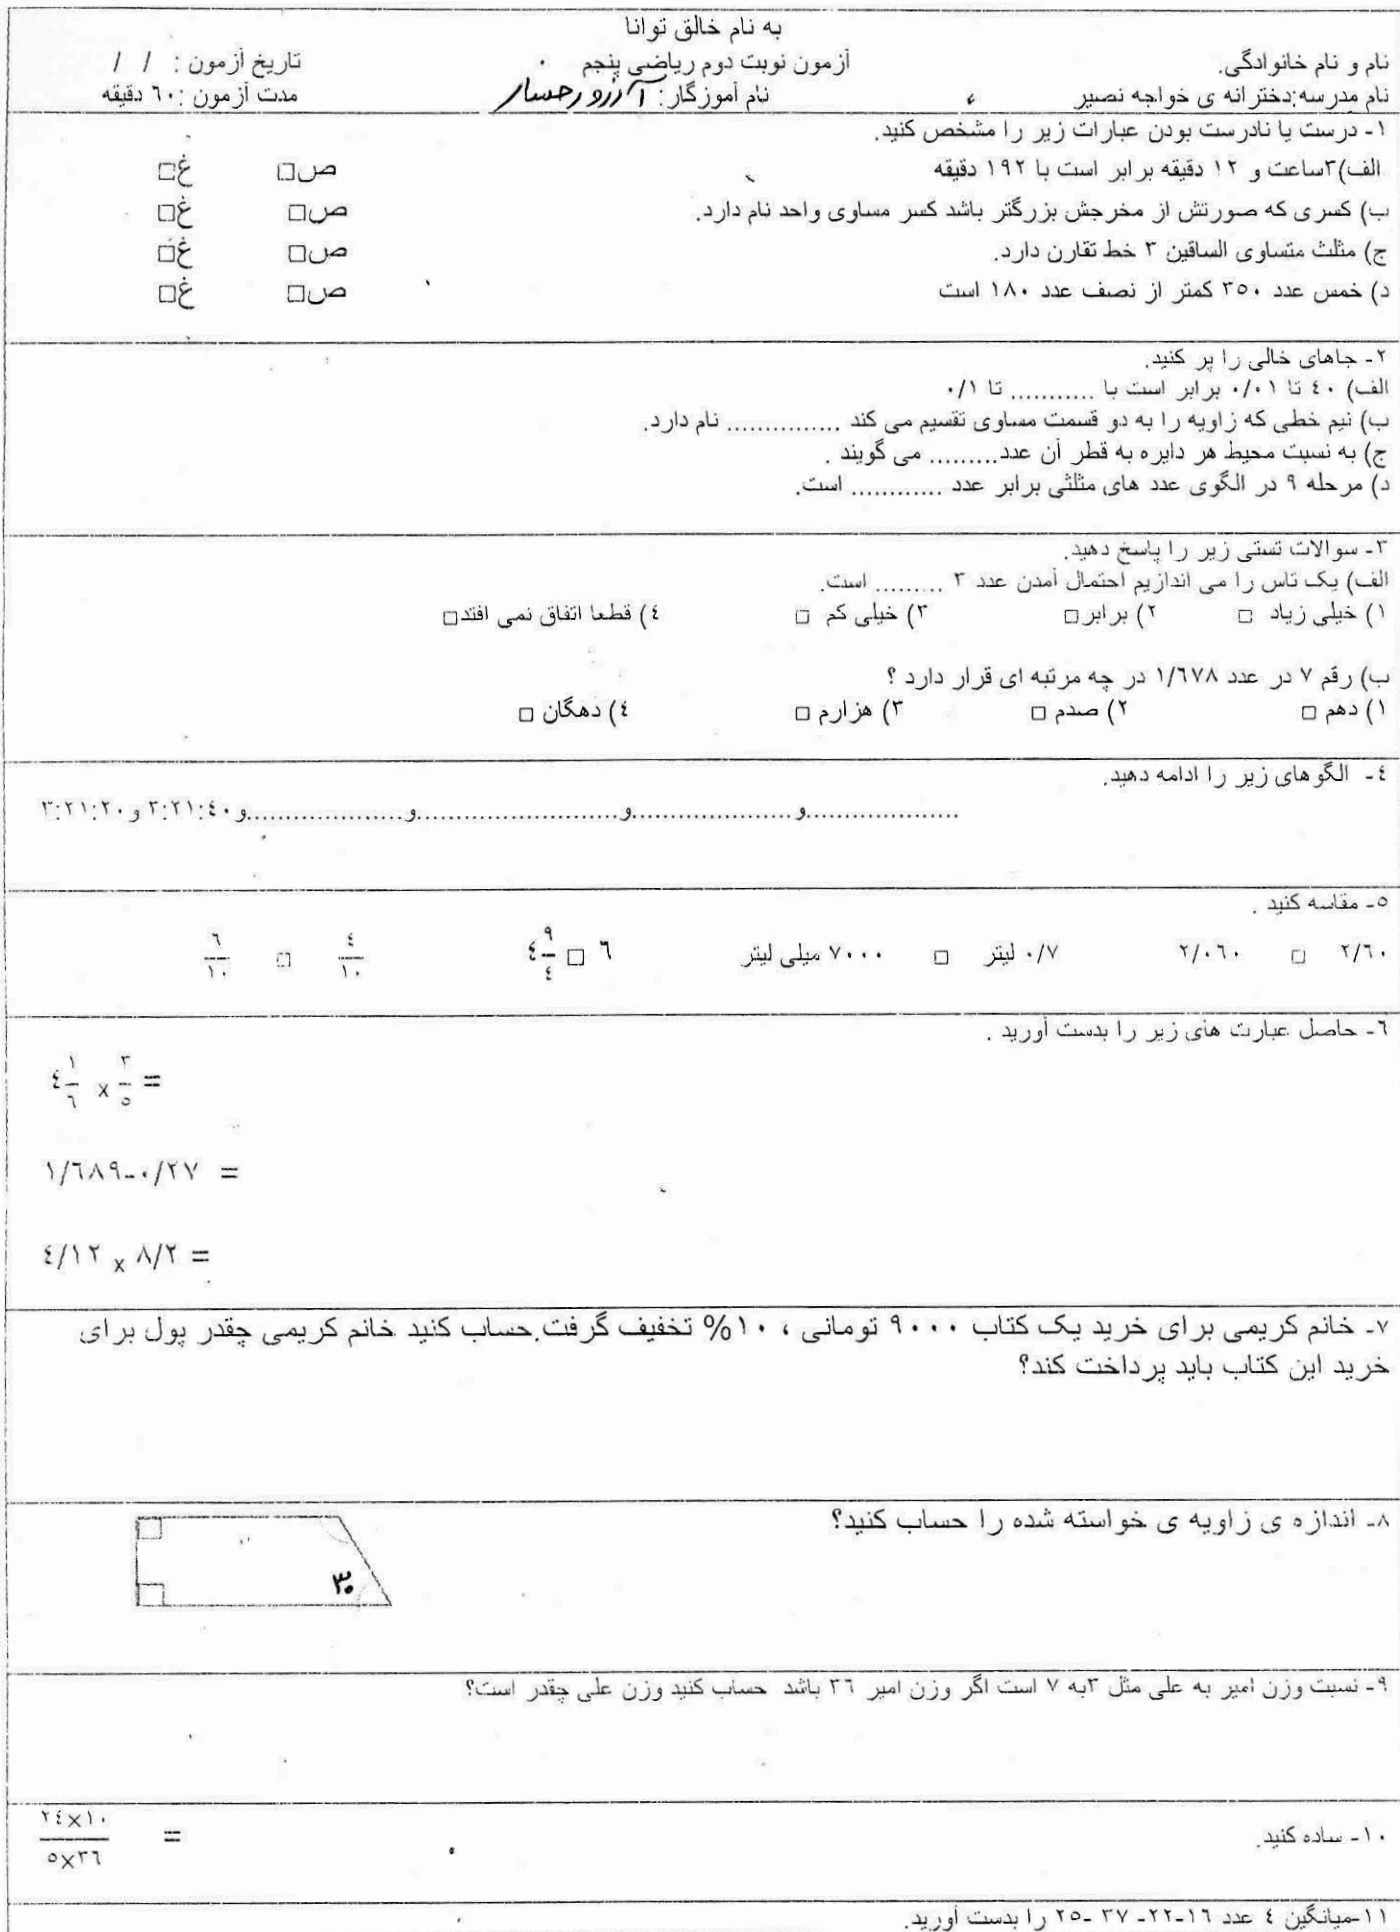 به نام خالق توانا
نام و نام خانوادگی.
آزمون نوبت دوم ریاضی پنجم
تاریخ آزمون : / /
نام مدرسه:دخترانه ی خواجه نصیر
نام آموزگار:
مدت آزمون :٦٠ دقیقه
١- درست یا نادرست بودن عبارات زیر را مشخص کنید.
الف)٣ساعت و ١٢ دقیقه برابر است با ١٩٢ دقیقه ص□ غ□
ب) کسری که صورتش از مخرجش بزرگتر باشد کسر مساوی واحد نام دارد. ص□ غ□
ج) مثلث متساوی الساقین ٣ خط تقارن دارد. ص□ غ□
د) خمس عدد ٣٥٠ کمتر از نصف عدد ١٨٠ است ص□ غ□
٢- جاهای خالی را پر کنید.
الف) ٤٠ تا ٠/٠١ برابر است با ........... تا ٠/١
ب) نیم خطی که زاویه را به دو قسمت مساوی تقسیم می کند ............... نام دارد.
ج) به نسبت محیط هر دایره به قطر آن عدد......... می گویند .
د) مرحله ٩ در الگوی عدد های مثلثی برابر عدد ............ است.
٣- سوالات تستی زیر را پاسخ دهید.
الف) یک تاس را می اندازیم احتمال آمدن عدد ٣ ......... است.
١) خیلی زیاد □ ٢) برابر□ ٣) خیلی کم □ ٤) قطعا اتفاق نمی افتد□
ب) رقم ٧ در عدد ١/٦٧٨ در چه مرتبه ای قرار دارد ؟
١) دهم □ ٢) صدم □ ٣) هزارم □ ٤) دهگان □
٤- الگوهای زیر را ادامه دهید.
٣:٢١:٢٠ و ٣:٢١:٤٠ و....................و..........................و....................و....................
٥- مقاسه کنید .
٢/٦٠ □ ٢/٠٦٠ ٠/٧ لیتر □ ٧٠٠٠ میلی لیتر ٦ □ ٤ ٩/٤ ٤/١٠ □ ٦/١٠
٦- حاصل عبارت های زیر را بدست آورید .
٤ ١/٦ × ٣/٥ =
١/٦٨٩-٠/٢٧ =
٤/١٢ × ٨/٢ =
٧- خانم کریمی برای خرید یک کتاب ٩٠٠٠ تومانی ، ١٠% تخفیف گرفت.حساب کنید خانم کریمی چقدر پول برای
خرید این کتاب باید پرداخت کند؟
٨- اندازه ی زاویه ی خواسته شده را حساب کنید؟
٣٠
٩- نسبت وزن امیر به علی مثل ٣به ٧ است اگر وزن امیر ٣٦ باشد حساب کنید وزن علی چقدر است؟
١٠- ساده کنید.
٢٤×١٠
=
٥×٣٦
١١-میانگین ٤ عدد ١٦-٢٢- ٣٧ -٢٥ را بدست آورید.